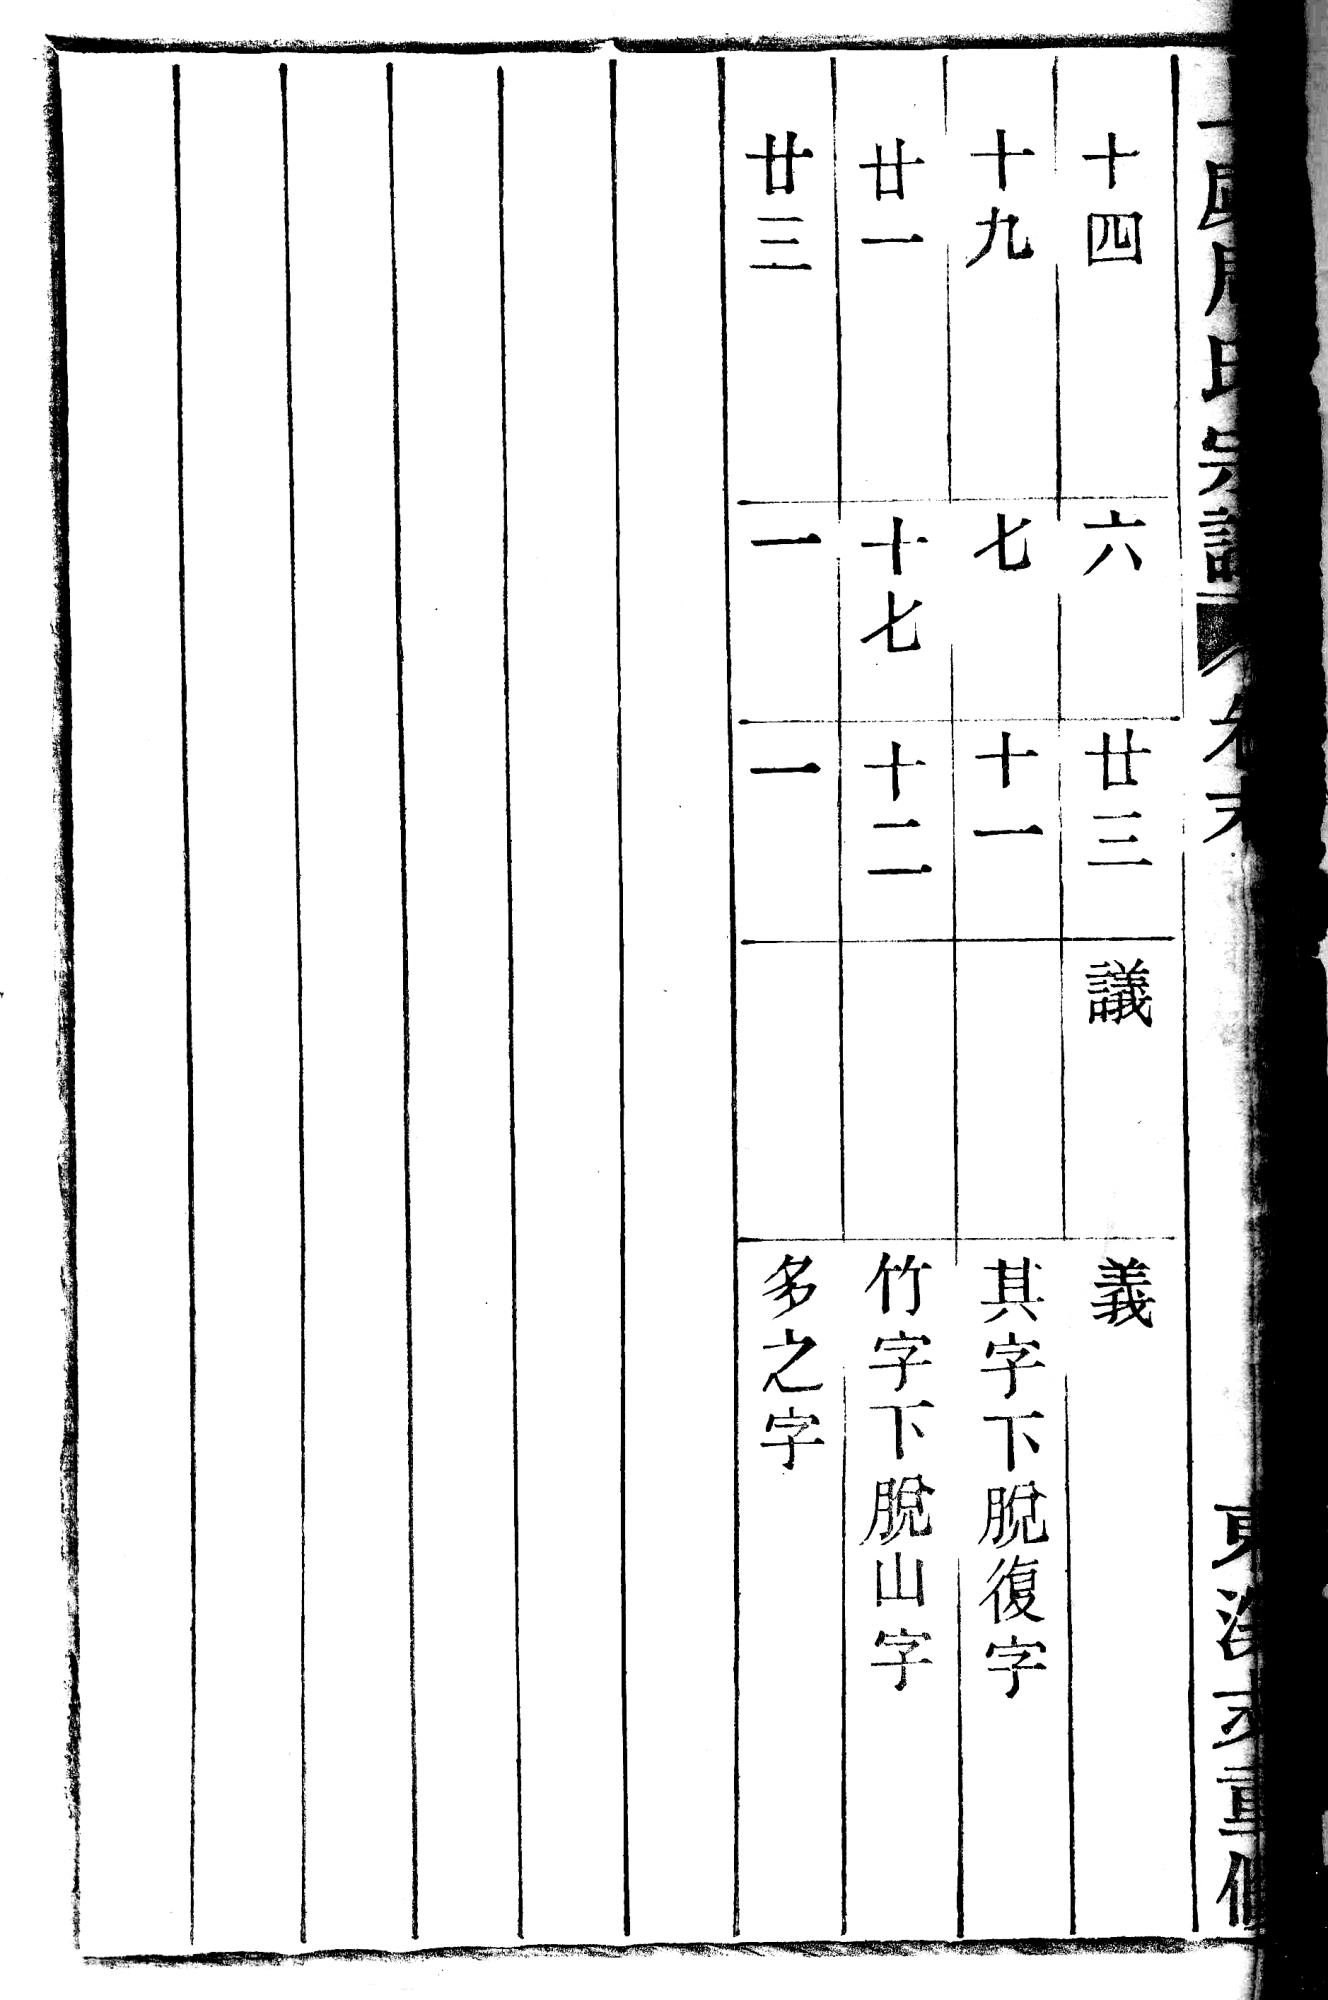 氏宗譜 卷末 東 重修
十四 六 廿三 議 義
十九 七 十一 其字下脫復字
廿一 十七 十二 竹字下脫山字
廿三 一 一 多之字